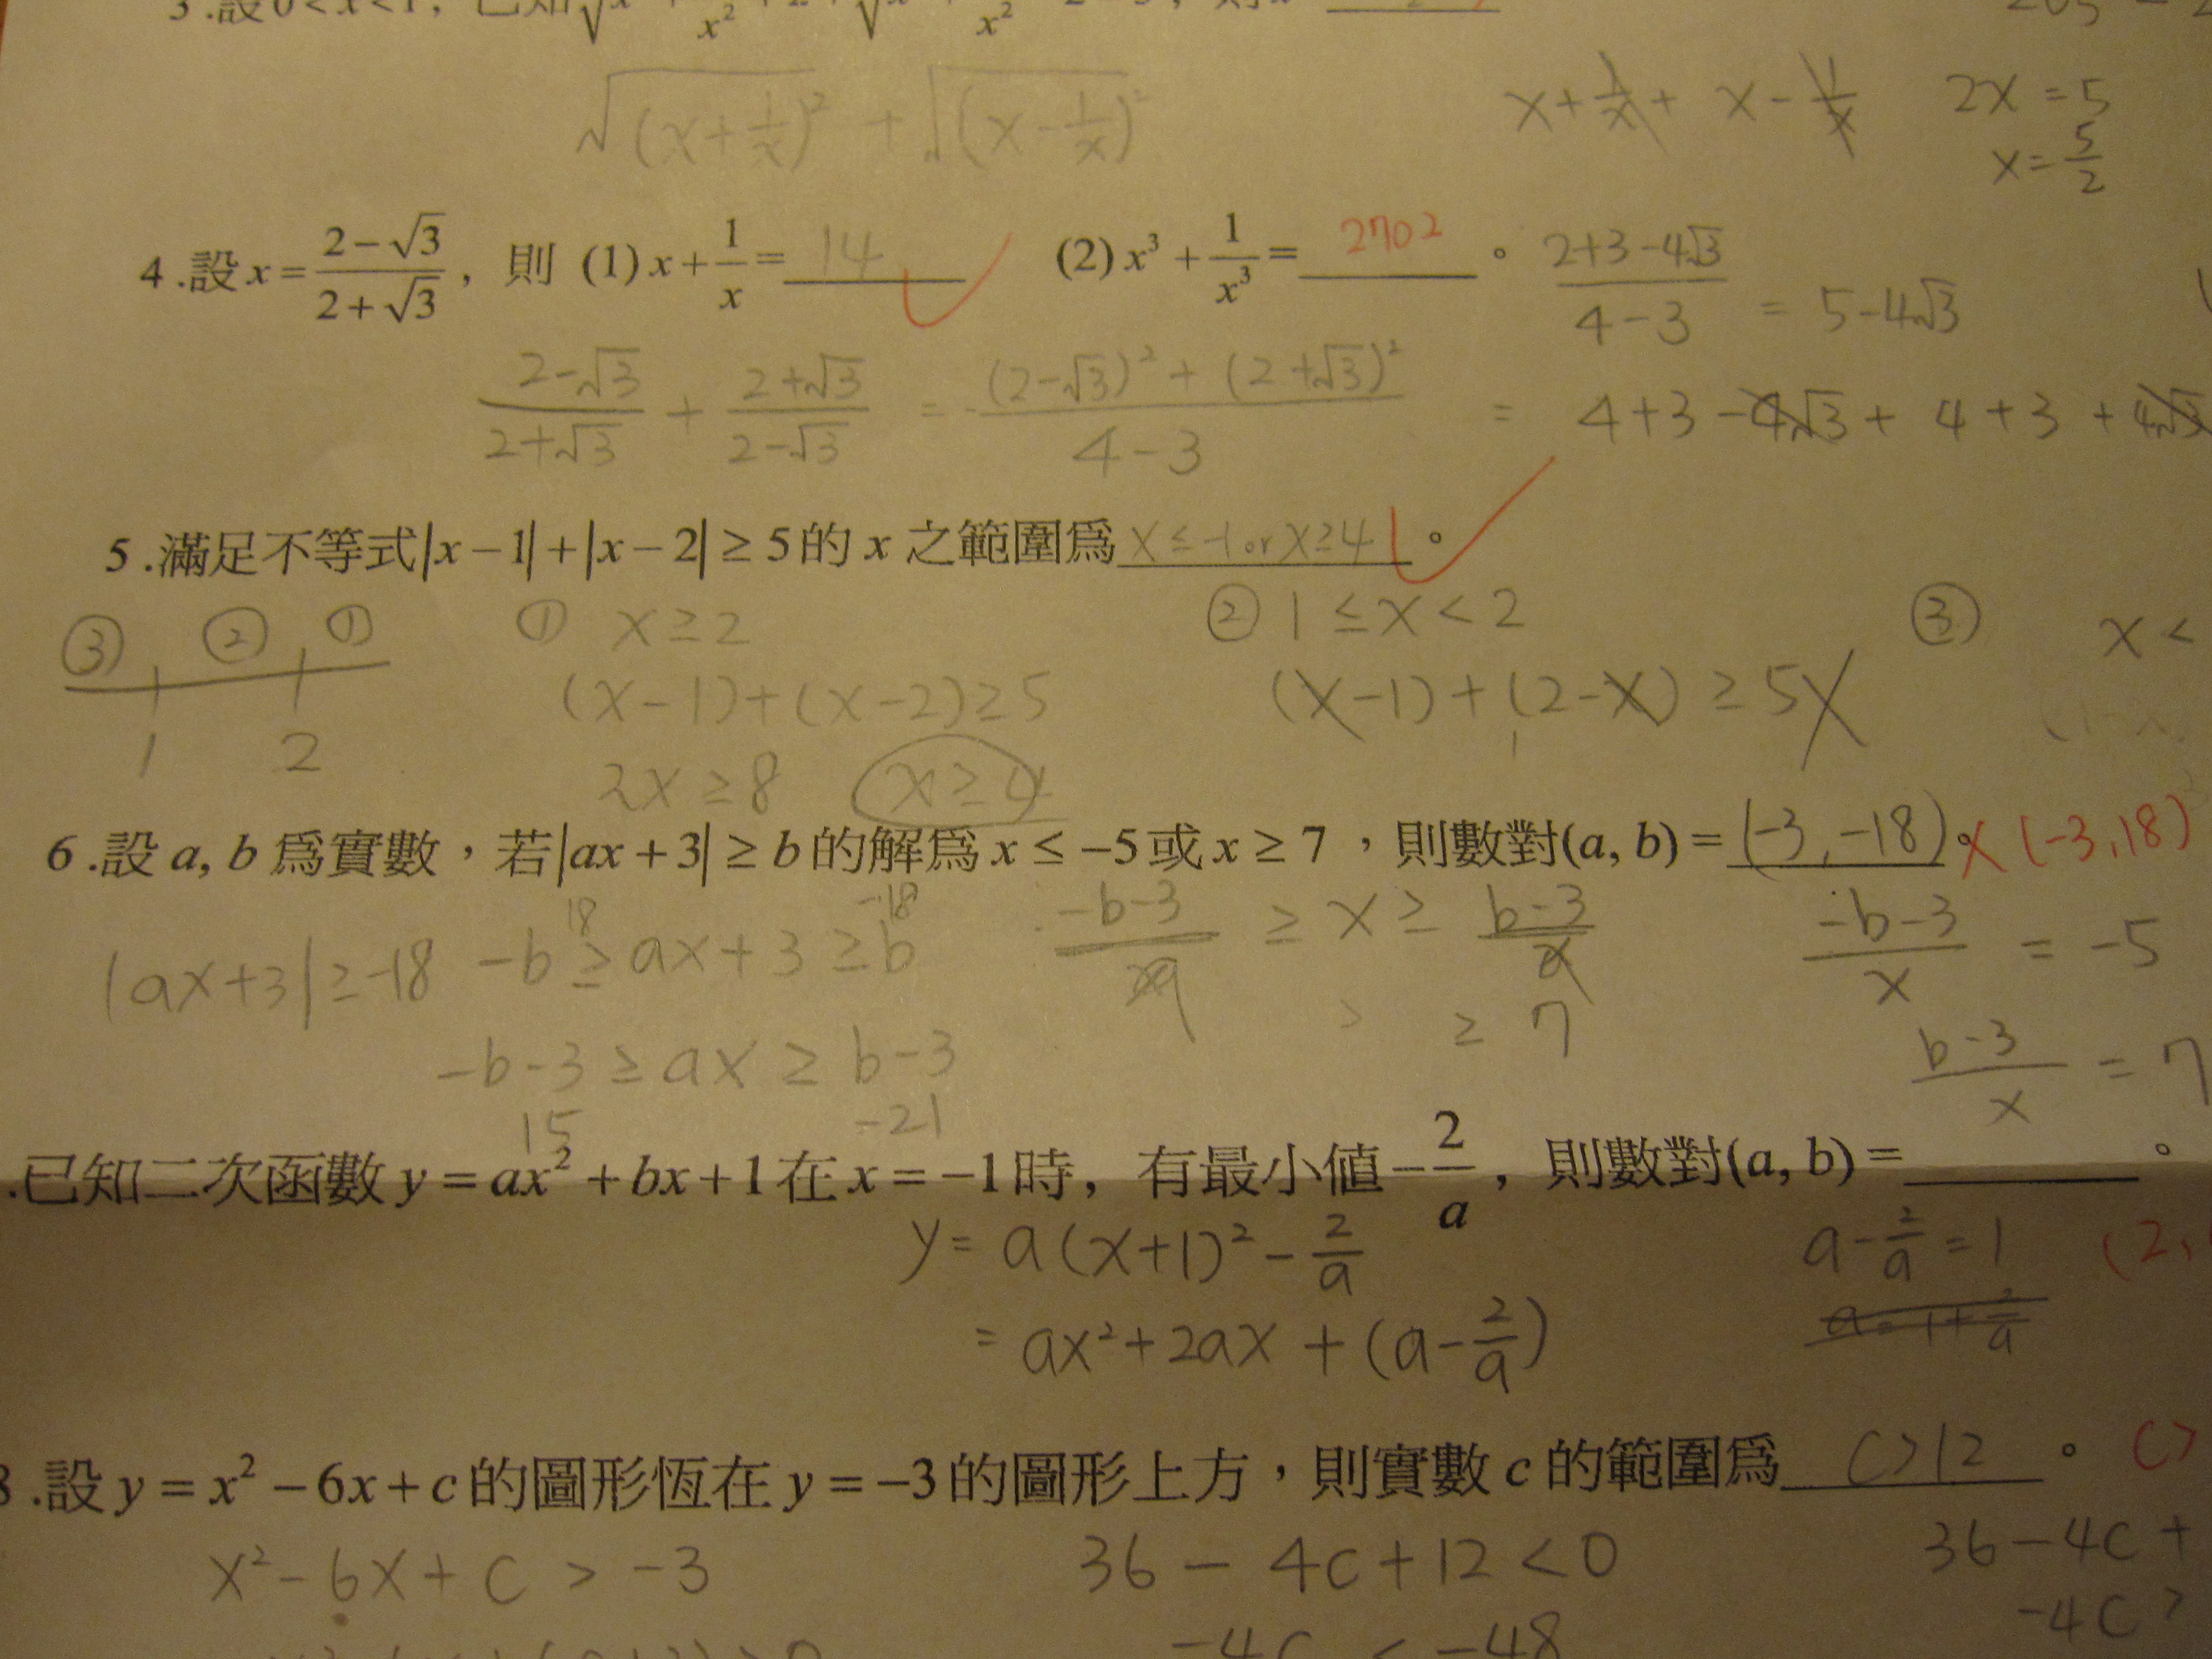 3.設0<x<1, 已知
√(x+1/x)² + √(x-1/x)²
x+1/x+ x-1/x 2x=5
x=5/2
4.設x=(2-√3)/(2+√3), 則 (1)x+1/x=14 (2)x³+1/x³=2702。
(2+3-4√3)/(4-3) = 5-4√3
(2-√3)/(2+√3) + (2+√3)/(2-√3) = ((2-√3)²+(2+√3)²)/(4-3) = 4+3-4√3+4+3+4√3
5.滿足不等式|x-1|+|x-2|≥5的x之範圍為x≤-1 or x≥4。
③ ② ① ① x≥2 ② 1≤x<2 ③ x<
1 2 (x-1)+(x-2)≥5 (x-1)+(2-x)≥5
1
2x≥8 x≥4
6.設a, b為實數,若|ax+3|≥b的解為x≤-5或x≥7,則數對(a, b)=(-3,-18)。 (-3,18)
18 -18
|ax+3|≥-18 -b≥ax+3≥b (-b-3)/a ≥ x ≥ (b-3)/a (-b-3)/x = -5
≥ 7
-b-3≥ax≥b-3 (b-3)/x = 7
15 -21
.已知二次函數y=ax²+bx+1在x=-1時, 有最小值-2/a, 則數對(a, b)=。
y=a(x+1)²-2/a a-2/a=1 (2,
=ax²+2ax+(a-2/a) a=1+2/a
8.設y=x²-6x+c的圖形恆在y=-3的圖形上方,則實數c的範圍為c>12。 c>
x²-6x+c>-3 36-4c+12<0 36-4c+
-4c<-48 -4c>